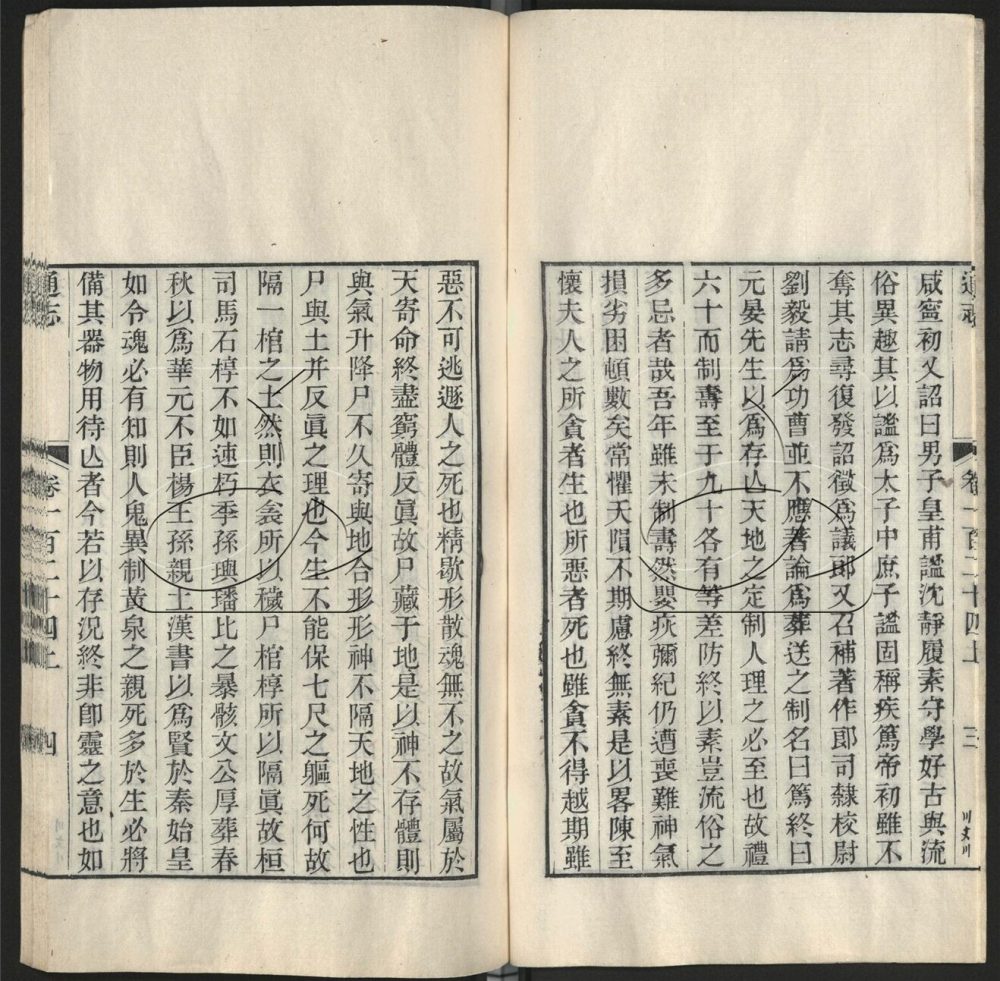 通志
卷一百二十四上
三
咸寧初又詔曰男子皇甫謐沈靜履素守學好古與流
俗異趣其以謐爲太子中庶子謐固稱疾篤帝初雖不
奪其志尋復發詔徵爲議郎又召補著作郎司隸校尉
劉毅請爲功曹並不應著論爲葬送之制名曰篤終曰
元晏先生以爲存亾天地之定制人理之必至也故禮
六十而制壽至于九十各有等差防終以素豈流俗之
多忌者哉吾年雖未制壽然嬰疢彌紀仍遭喪難神氣
損劣困頓數矣常懼天隕不期慮終無素是以畧陳至
懷夫人之所貪者生也所惡者死也雖貪不得越期雖
惡不可逃遯人之死也精歇形散魂無不之故氣屬於
天寄命終盡窮體反眞故尸藏于地是以神不存體則
與氣升降尸不久寄與地合形形神不隔天地之性也
尸與土并反眞之理也今生不能保七尺之軀死何故
隔一棺之土然則衣衾所以穢尸棺椁所以隔眞故桓
司馬石椁不如速朽季孫璵璠比之暴骸文公厚葬春
秋以爲華元不臣楊王孫親土漢書以爲賢於秦始皇
如令魂必有知則人鬼異制黃泉之親死多於生必將
備其器物用待亾者今若以存況終非卽靈之意也如
通志
卷一百二十四上
四